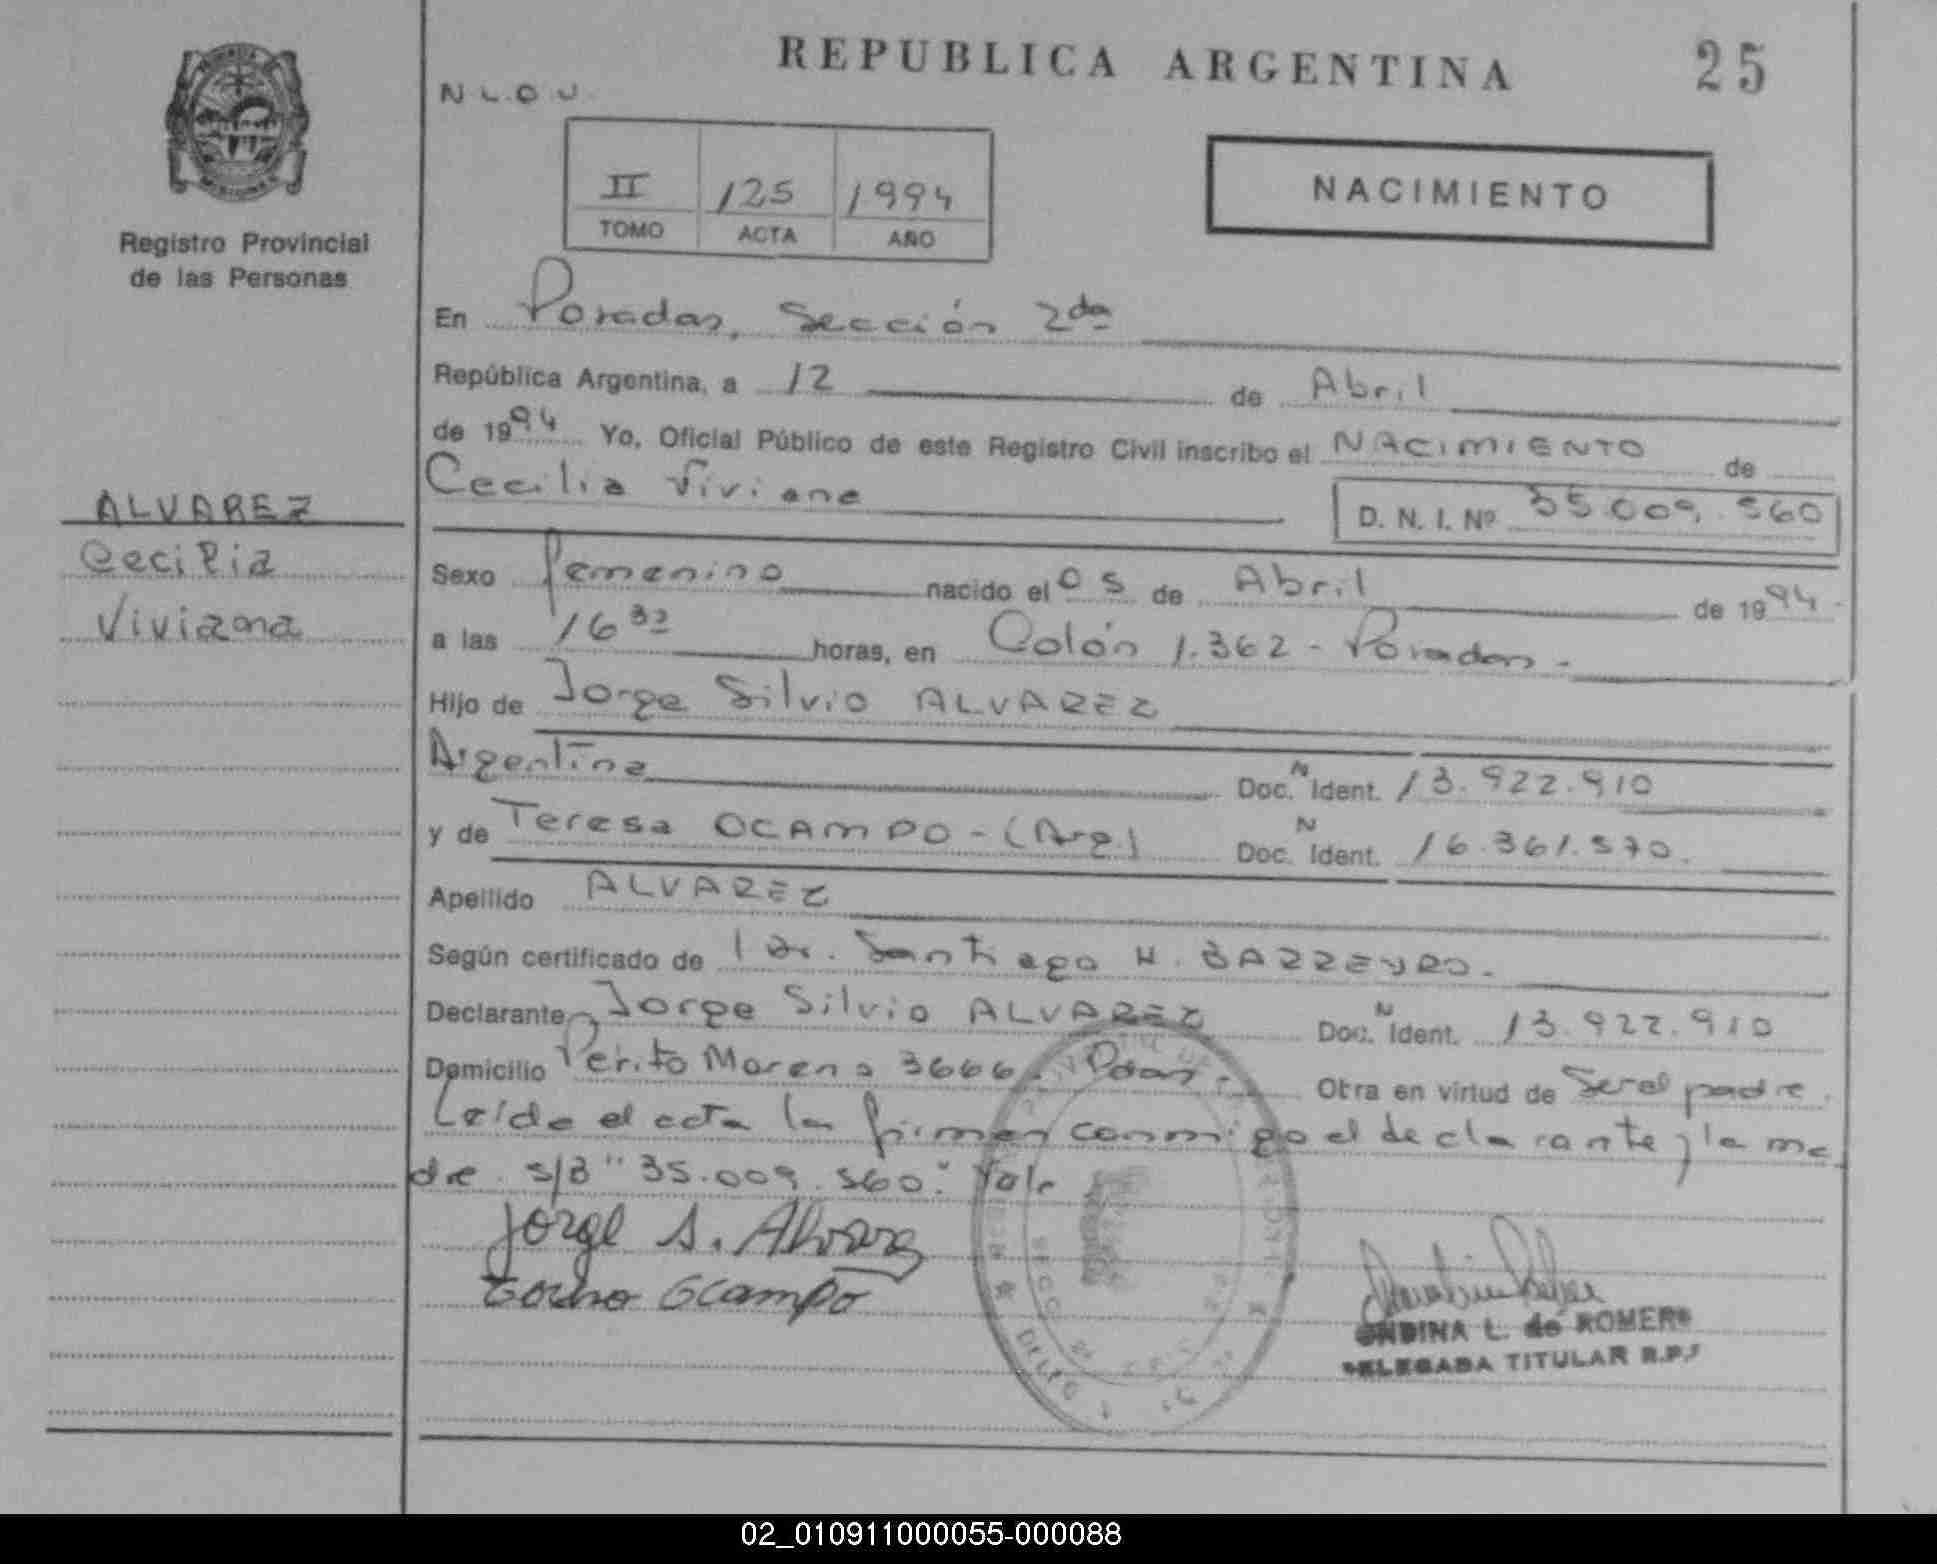 REPUBLICA ARGENTINA 25
N L.O.U.
II 125 1994
TOMO ACTA AÑO
NACIMIENTO
Registro Provincial
de las Personas
En Posadas, Sección 2da
República Argentina, a 12 de Abril
de 1994 Yo, Oficial Público de este Registro Civil inscribo el NACIMIENTO de
Cecilia Viviana
D. N. I. Nº 35.009.560
ALVAREZ
Cecilia
Viviana
Sexo femenino nacido el 05 de Abril de 1994.
a las 16 32 horas, en Colón 1.362 - Posadas.-
Hijo de Jorge Silvio ALVAREZ
Argentina Doc. N Ident. 13.922.910
y de Teresa OCAMPO - (Arg) Doc. N Ident. 16.361.570.
Apellido ALVAREZ
Según certificado de l Dr. Santiago H. BARREYRO.
Declarante Jorge Silvio ALVAREZ Doc. N Ident. 13.922.910
Domicilio Perito Moreno 3666. Pdas. Otra en virtud de Ser el padre.
Leída el acta la firman conmigo el declarante y la ma
dre. s/B "35.009.560." Vale
Jorge S. Alvarez
Ocampo
ONDINA L. de ROMERO
DELEGADA TITULAR R.P.
02_010911000055-000088